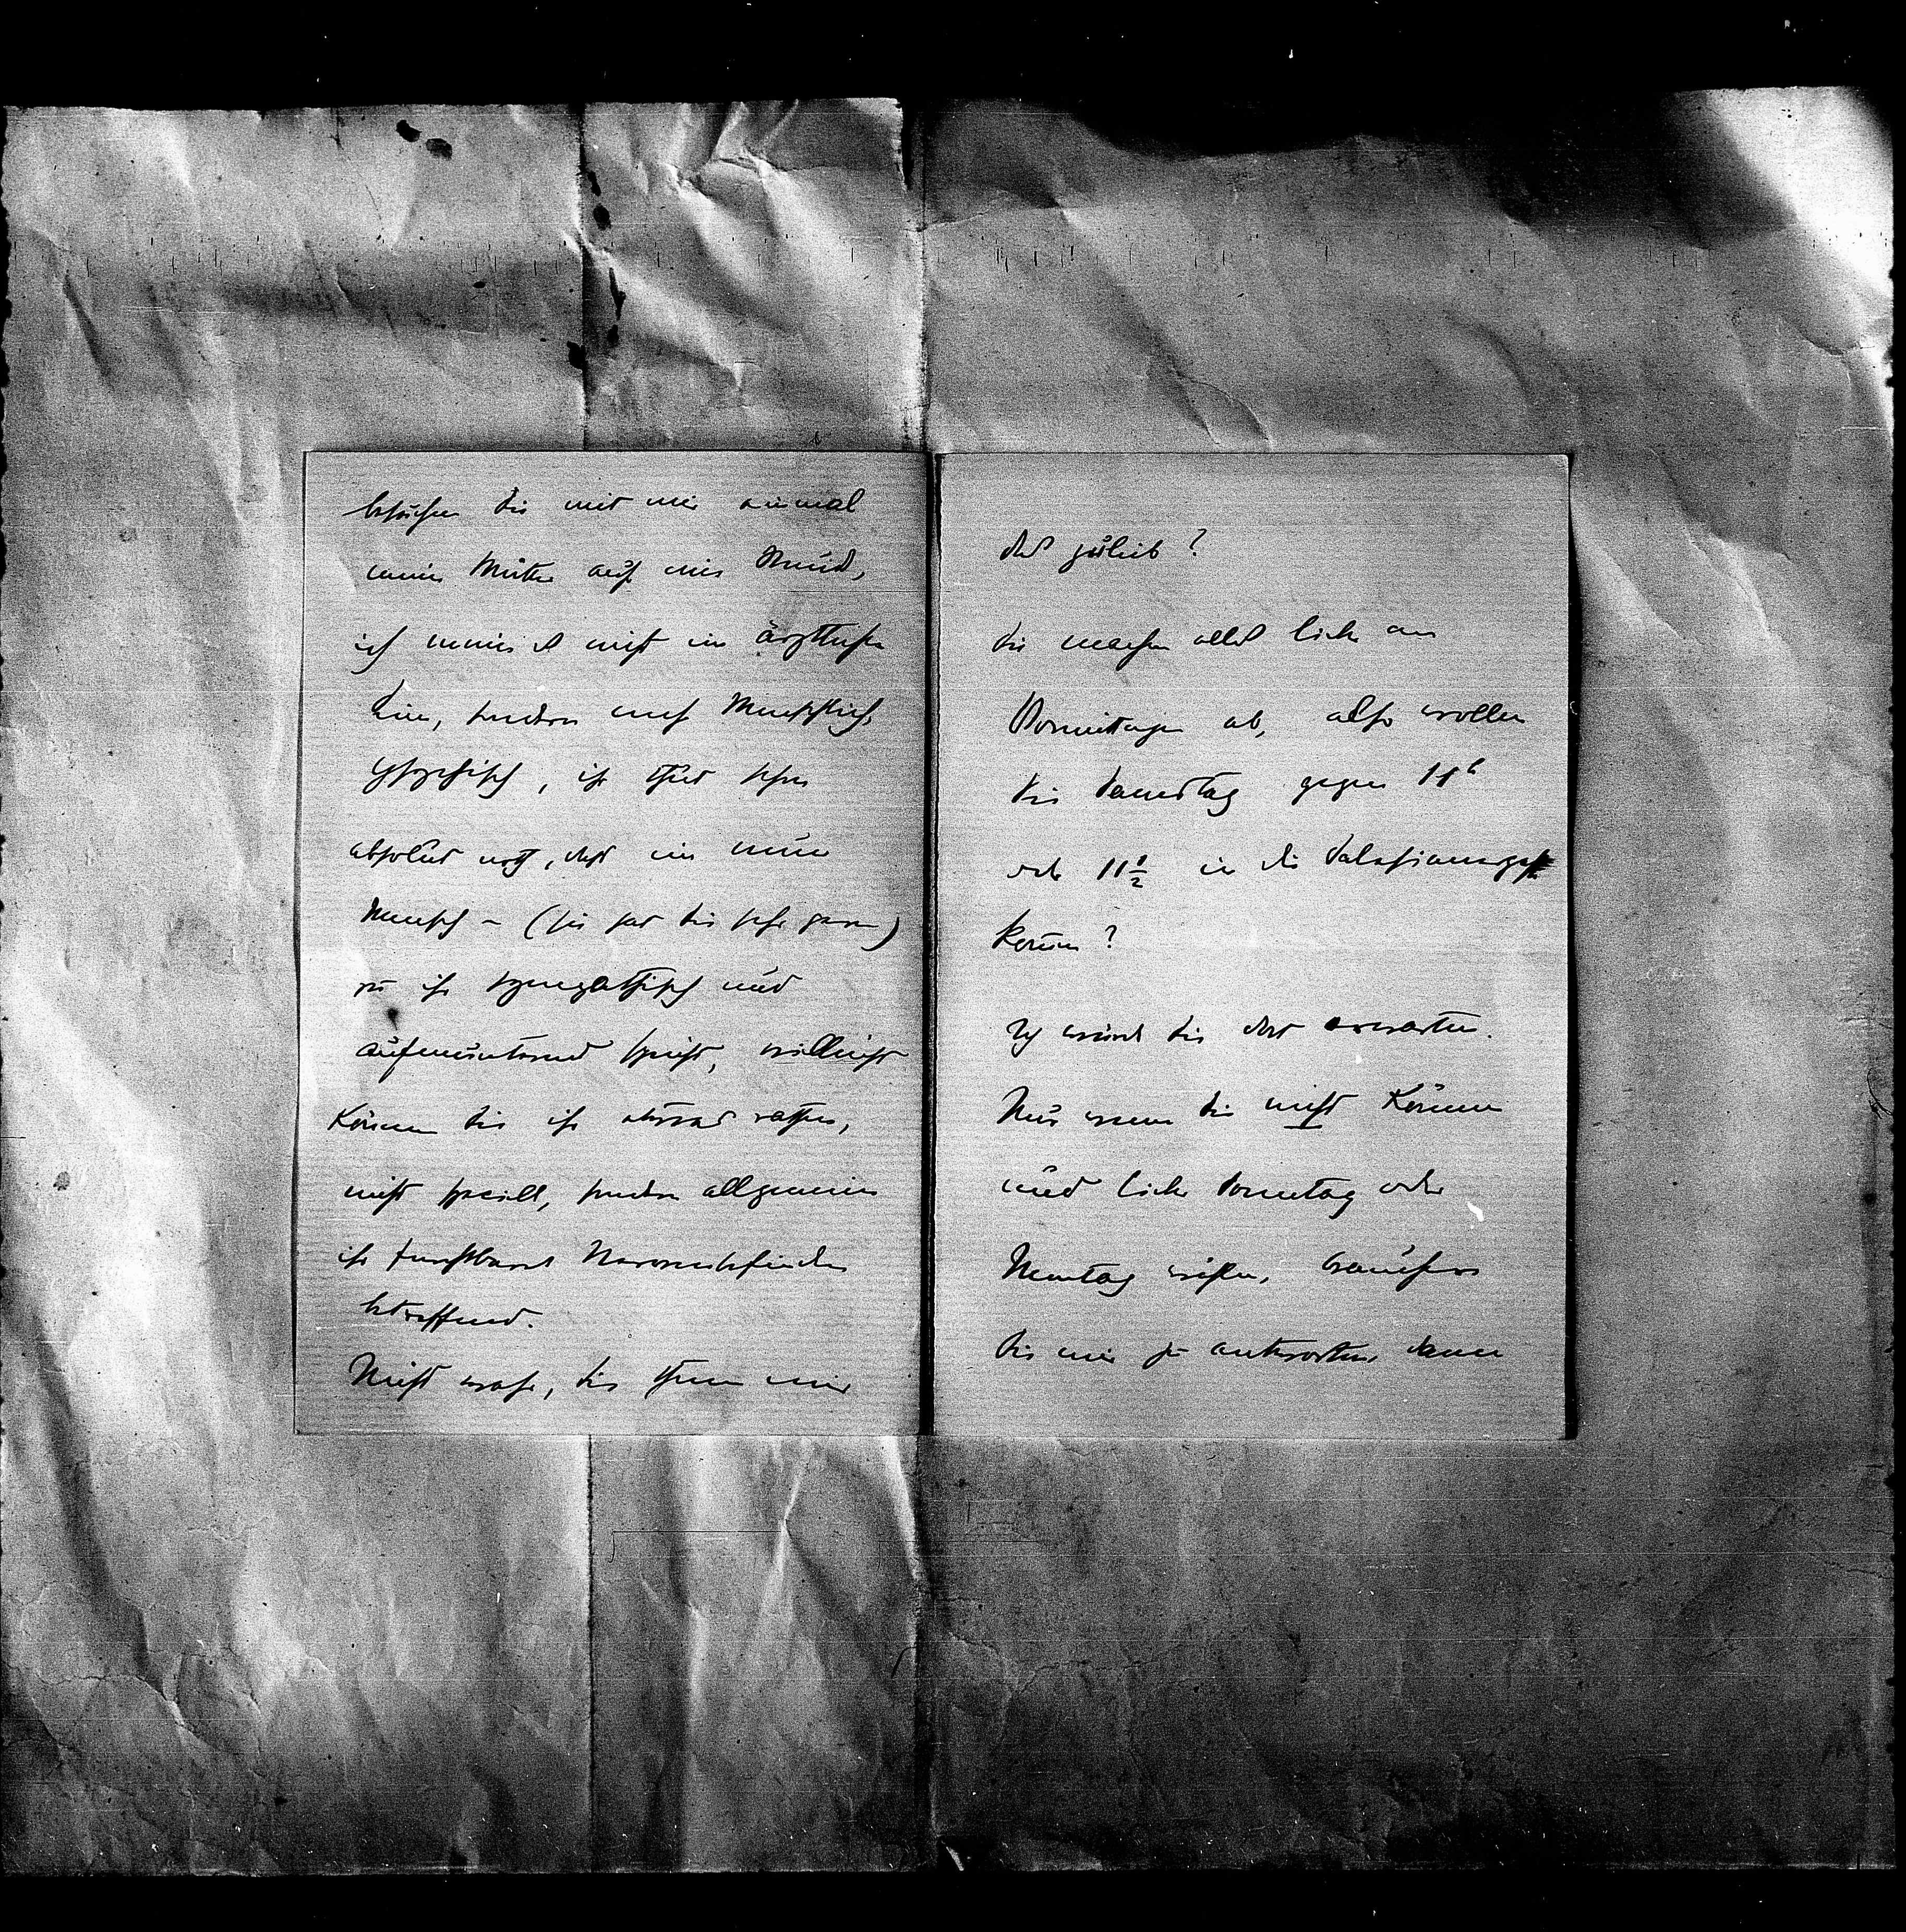 besuchen Sie mit mir einmal
meine Mutter auf eine Stund,
ich meine es nicht im ärztlichen
Sinn, sondern auch Menschlich,
psychisch, ihr thut schon
absolut noth, dass ein neuer
Mensch – (sie hat Sie sehr gern)
zu ihr sympathisch und
aufmunternd spricht, vielleicht
können Sie ihr etwas rathen,
nicht speciell, sondern allgemein
ihr furchtbares Nervenbefinden
betreffend.
Nicht wahr, Sie thun mir
das zulieb?
Sie machen alles lieber am
Vormittagen ab, also wollen
Sie Samstag gegen 11h
oder 11½ in die Salesianergasse
komen?
Ich würde Sie dort erwarten.
Nur wenn Sie nicht können
und lieber Sonntag oder
Montag wollen, brauchen
Sie mir zu antworten, dann